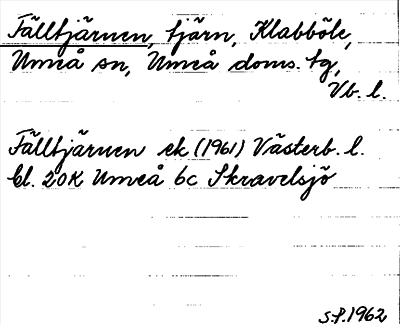 Fälltjärnen, tjärn, Klabböle,
Umeå sn, Umeå doms. tg,
Vb. l.
Fälltjärnen ek (1961) Västerb. l.
bl. 20K Umeå 6c Skravelsjö
S.P. 1962